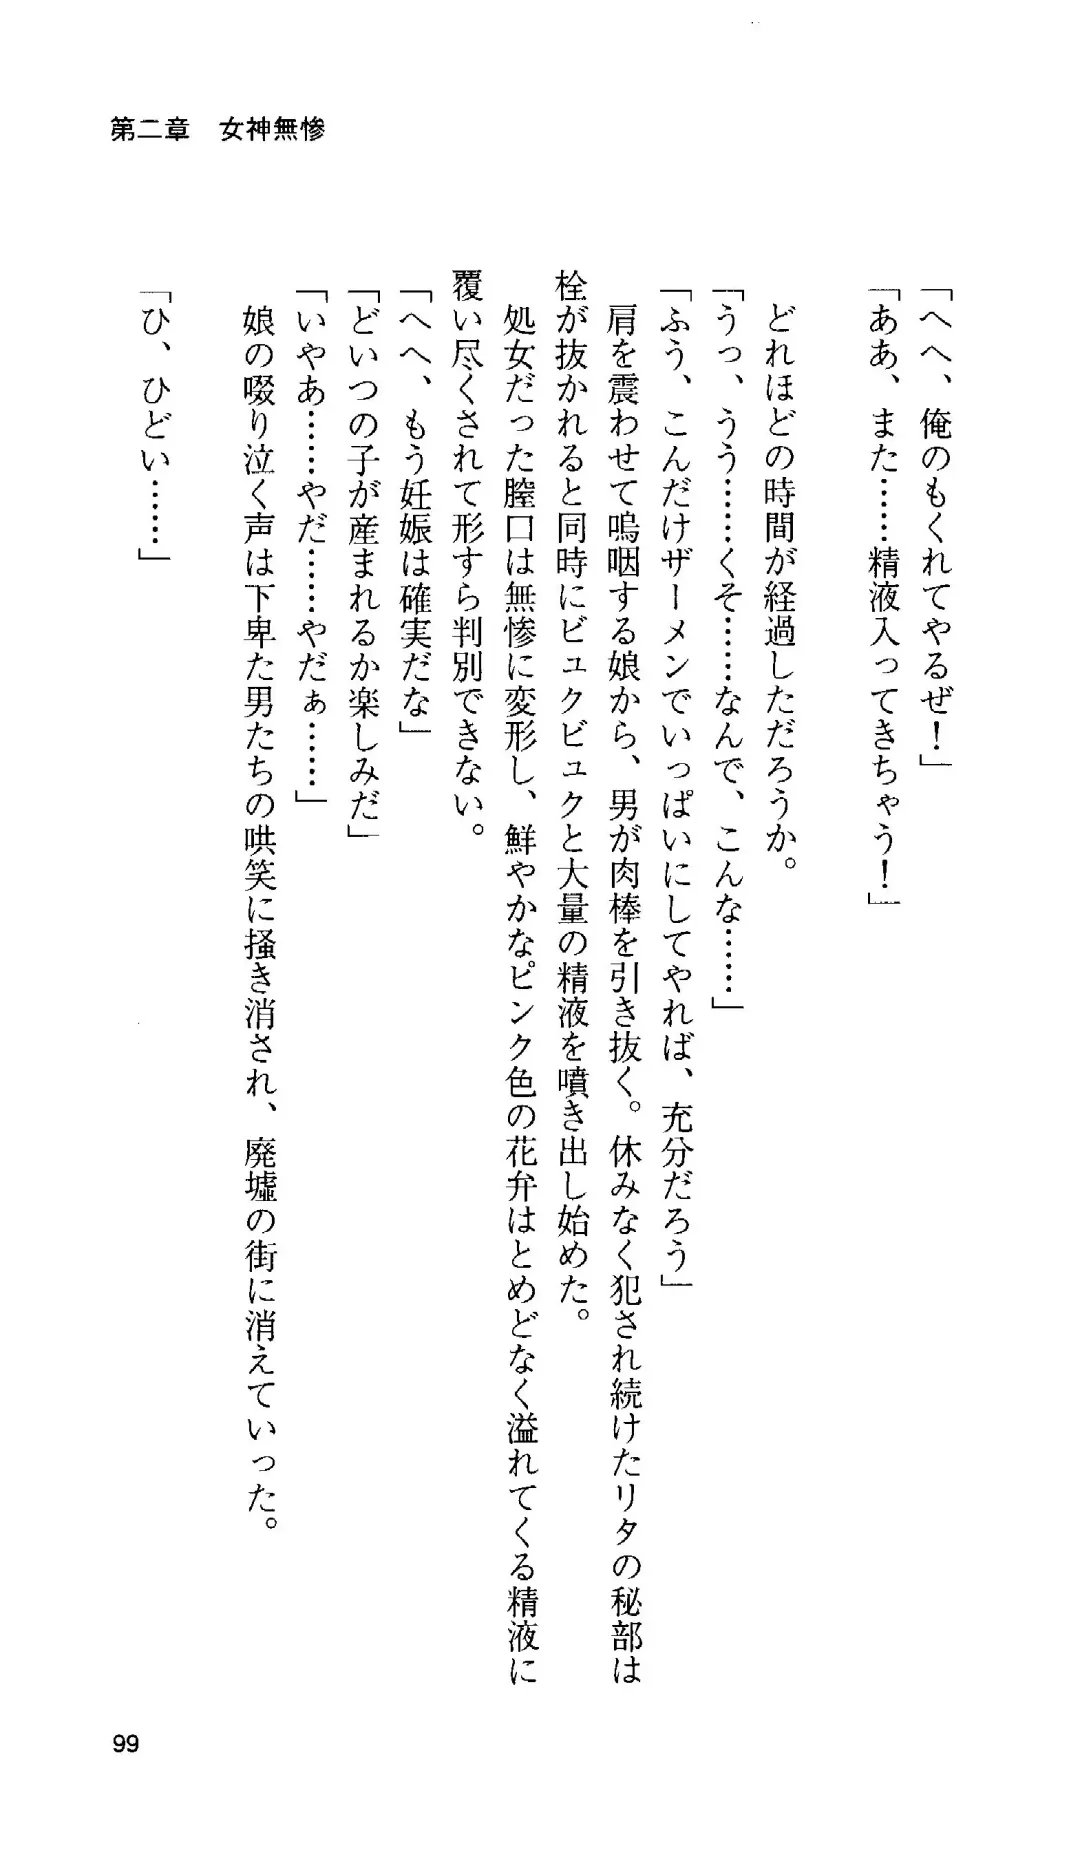 第二章　女神無惨
「へへ、俺のもくれてやるぜ！」
「ああ、また……精液入ってきちゃう！」
どれほどの時間が経過しただろうか。
「うっ、うう……くそ……なんで、こんな……」
「ふう、こんだけザーメンでいっぱいにしてやれば、充分だろう」
肩を震わせて嗚咽する娘から、男が肉棒を引き抜く。休みなく犯され続けたリタの秘部は
栓が抜かれると同時にビュクビュクと大量の精液を噴き出し始めた。
処女だった膣口は無惨に変形し、鮮やかなピンク色の花弁はとめどなく溢れてくる精液に
覆い尽くされて形すら判別できない。
「へへ、もう妊娠は確実だな」
「どいつの子が産まれるか楽しみだ」
「いやあ……やだ……やだぁ……」
娘の啜り泣く声は下卑た男たちの哄笑に掻き消され、廃墟の街に消えていった。
「ひ、ひどい……」
99